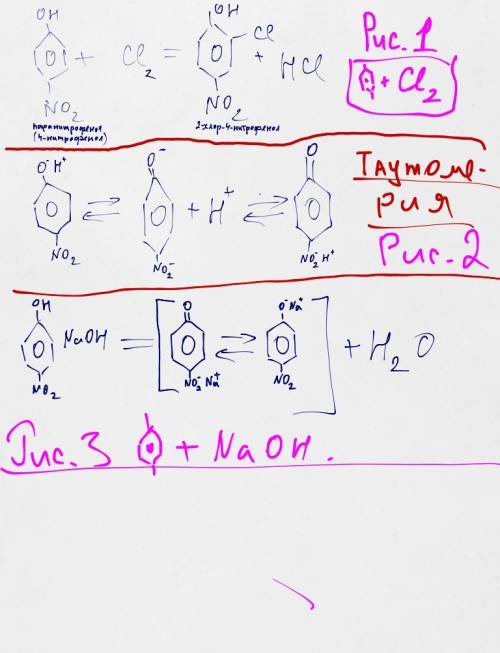 OH
OH
Cl
+ Cl₂ = + HCl
NO₂
NO₂
паранитрофенол
(4-нитрофенол)
2-хлор-4-нитрофенол
Рис. 1
+ Cl₂
O⁻H⁺
O⁻
O
+ H⁺
NO₂
NO₂⁻
NO₂⁻H⁺
Таутоме-
рия
Рис. 2
OH
O
O⁻Na⁺
NaOH =
+ H₂O
NO₂
NO₂⁻Na⁺
NO₂
Рис. 3 + NaOH.